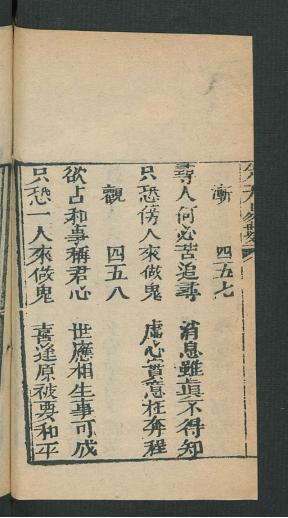 漸 四五七
尋人何必苦追尋 消息雖眞不得知
只恐傍人來做鬼 虛心實意枉奔程
觀 四五八
欲占和事稱君心 世應相生事可成
只恐一人來做鬼 喜逢原被要和平